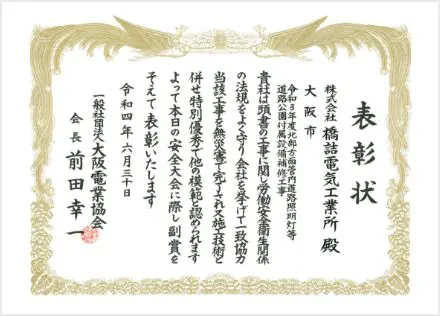 表彰状
株式会社 橋詰電気工業所 殿
大阪市
令和3年度北部方面管内道路照明灯等
道路公園付属設備補修工事
貴社は頭書の工事に関し労働安全衛生関係
の法規をよく守り会社を挙げて一致協力
当該工事を無災害で完了され又施工技術と
併せ特別優秀で他の模範と認められます
よって本日の安全大会に際し副賞を
そえて表彰いたします
令和四年六月三十日
一般社団法人大阪電業協会
会長 前田幸一